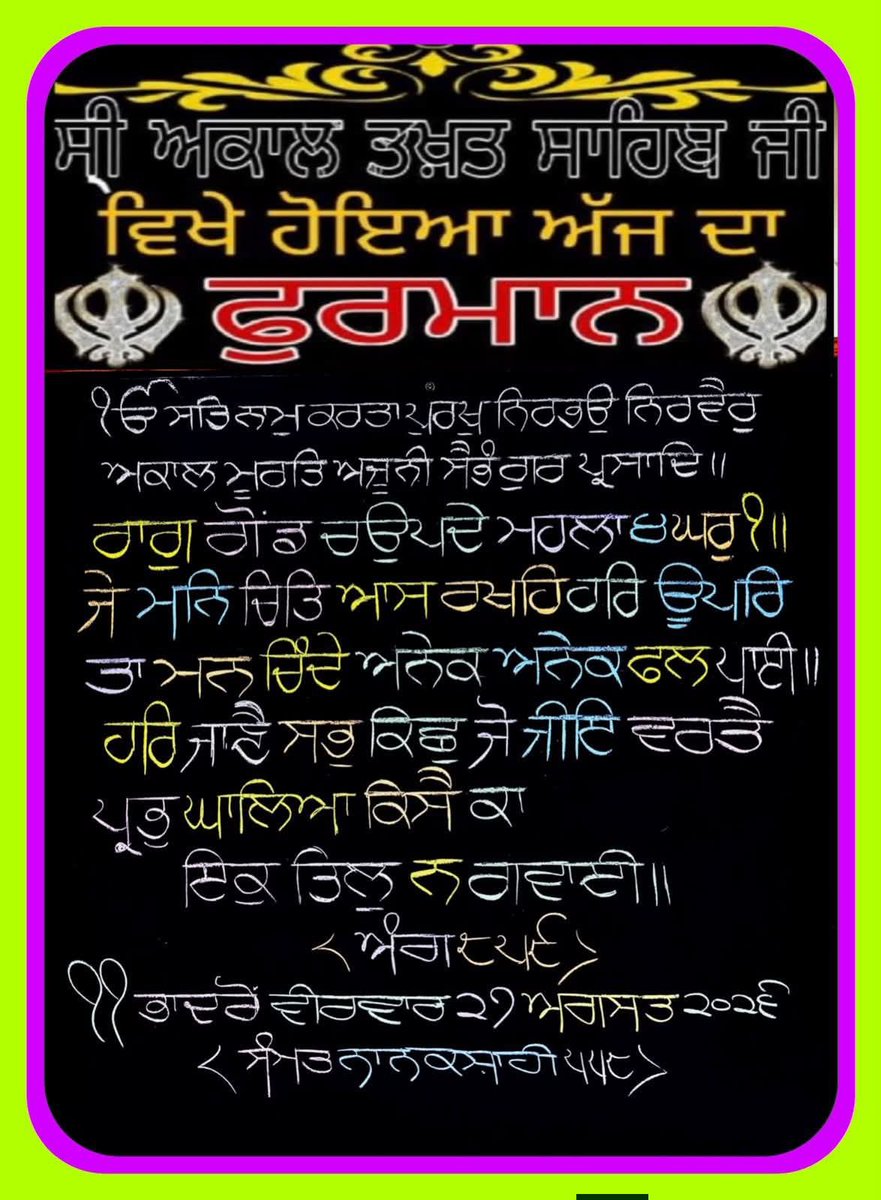 ਸ੍ਰੀ ਅਕਾਲ ਤਖ਼ਤ ਸਾਹਿਬ ਜੀ
ਵਿਖੇ ਹੋਇਆ ਅੱਜ ਦਾ
ਫੁਰਮਾਨ
੧ੴ ਸਤਿ ਨਾਮੁ ਕਰਤਾ ਪੁਰਖੁ ਨਿਰਭਉ ਨਿਰਵੈਰੁ
ਅਕਾਲ ਮੂਰਤਿ ਅਜੂਨੀ ਸੈਭੰ ਗੁਰ ਪ੍ਰਸਾਦਿ॥
ਰਾਗੁ ਗੋਂਡ ਚਉਪਦੇ ਮਹਲਾ ੪ ਘਰੁ ੧॥
ਜੇ ਮਨਿ ਚਿਤਿ ਆਸ ਰਖਹਿ ਹਰਿ ਊਪਰਿ
ਤਾ ਮਨ ਚਿੰਦੇ ਅਨੇਕ ਅਨੇਕ ਫਲ ਪਾਈ॥
ਹਰਿ ਜਾਣੈ ਸਭੁ ਕਿਛੁ ਜੋ ਜੀਇ ਵਰਤੈ
ਪ੍ਰਭੁ ਘਾਲਿਆ ਕਿਸੈ ਕਾ
ਇਕੁ ਤਿਲੁ ਨ ਗਵਾਈ॥
(ਅੰਗ ੮੫੯)
੧੧ ਭਾਦਰੋਂ ਵੀਰਵਾਰ ੨੭ ਅਗਸਤ ੨੦੨੬
(ਸੰਮਤ ਨਾਨਕਸ਼ਾਹੀ ੫੫੮)